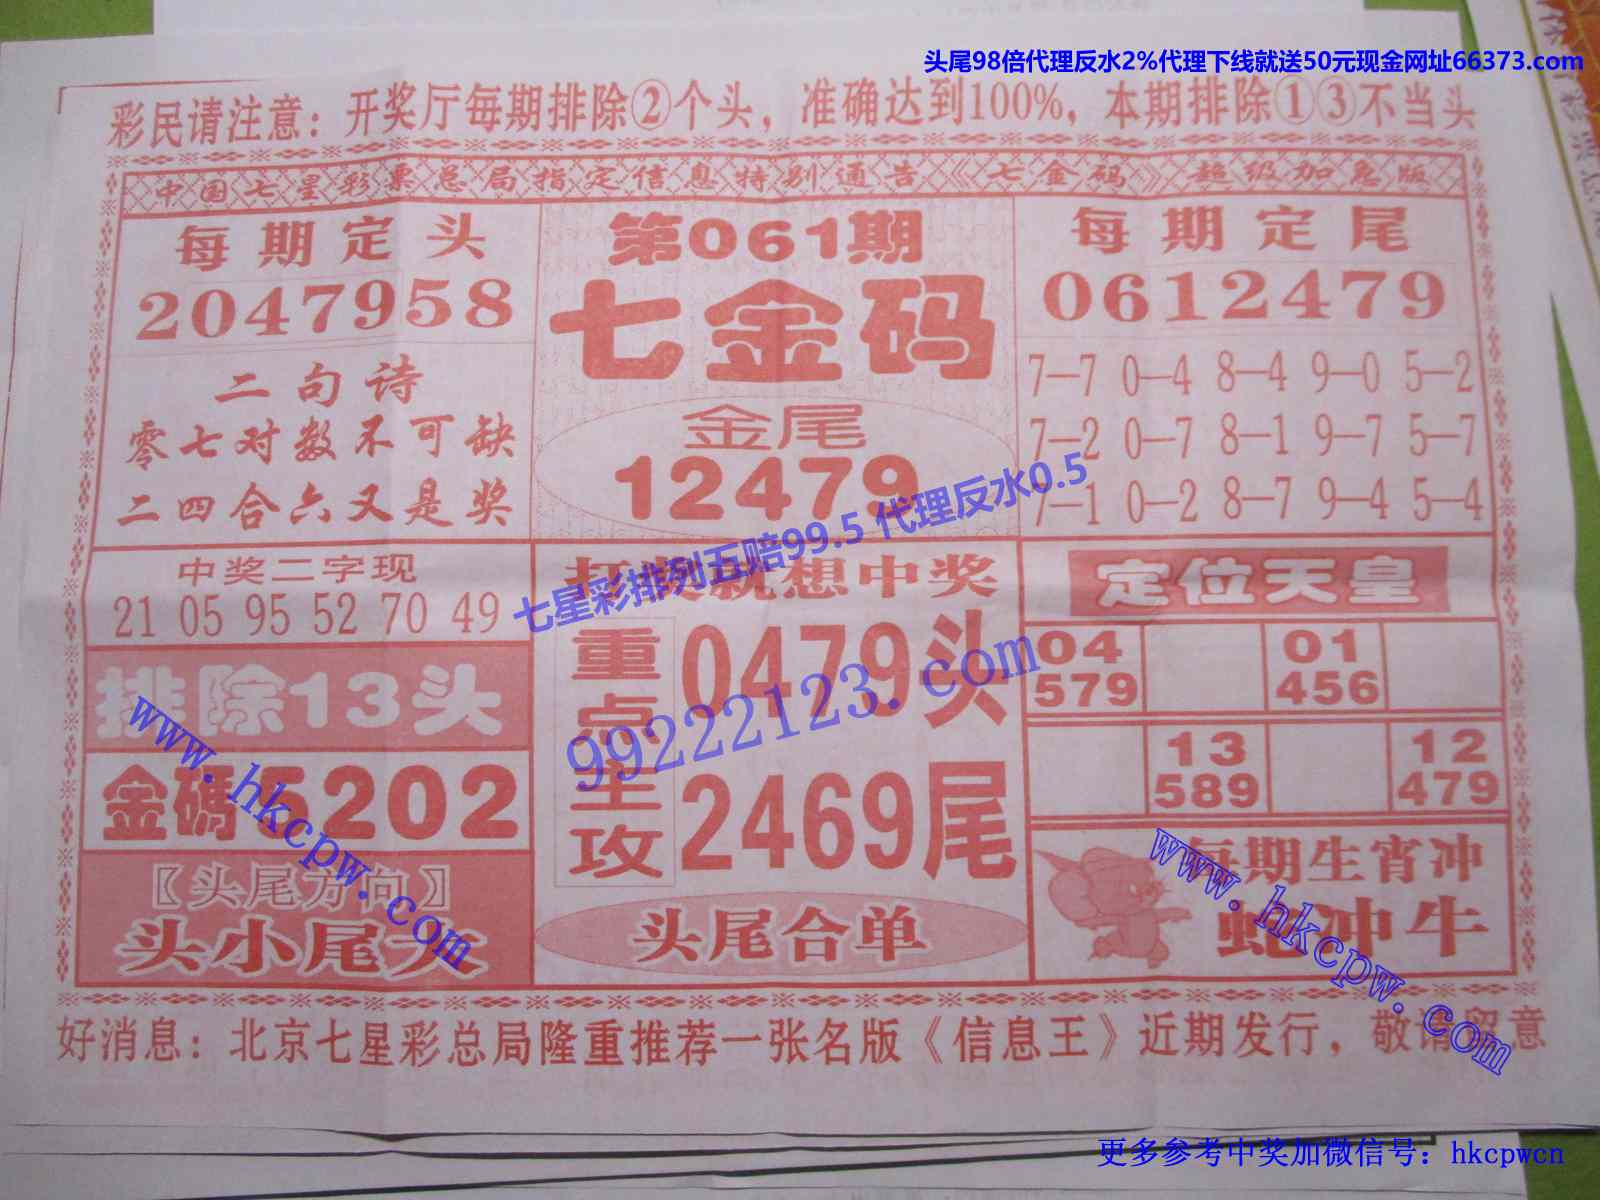 头尾98倍代理反水2%代理下线就送50元现金网址66373.com
彩民请注意：开奖厅每期排除②个头，准确达到100%，本期排除①③不当头
中国七星彩票总局指定信息特别通告《七金码》超级加急版
每期定头
2047958
二句诗
零七对数不可缺
二四合六又是奖
第061期
七金码
金尾
12479
每期定尾
0612479
7—7 0—4 8—4 9—0 5—2
7—2 0—7 8—1 9—7 5—7
7—1 0—2 8—7 9—4 5—4
七星彩排列五赔99.5 代理反水0.5
中奖二字现
21 05 95 52 70 49
排除13头
金碼5202
〖头尾方向〗
头小尾大
就想中奖
重点主攻
0479头
2469尾
99222123.com
头尾合单
定位天皇
04 579
01 456
13 589
12 479
每期生肖冲
蛇冲牛
www.hkcpw.com
www.hkcpw.com
好消息：北京七星彩总局隆重推荐一张名版《信息王》近期发行，敬请留意
更多参考中奖加微信号：hkcpwcn